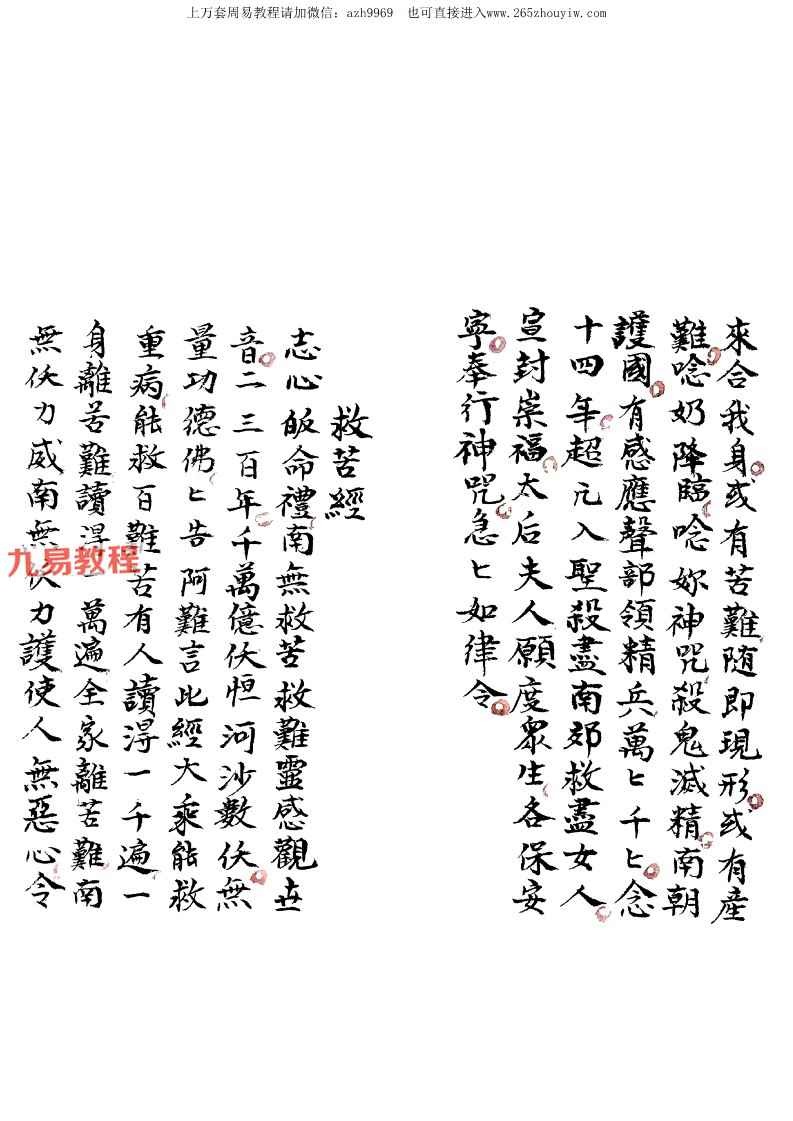 上万套周易教程请加微信: azh9969 也可直接进入www.265zhouyiw.com
來合我身或有苦難随即現形或有産
難唸奶降臨唸妳神咒殺鬼滅精南朝
護國有感應聲部領精兵萬匕千匕念
十四年超元入聖殺盡南郊救盡女人
宣封崇福太后夫人願度眾生各保安
寜奉行神咒急匕如律令
救苦經
志心皈命禮南無救苦救難靈感觀世
音二三百年千萬億伏恒河沙數伏無
量功德佛匕告阿難言此經大乘能救
重病能救百難苦有人讀淂一千遍一
身離苦難讀淂一萬遍全家離苦難南
無伏力威南無伏力護使人無惡心令
九易教程